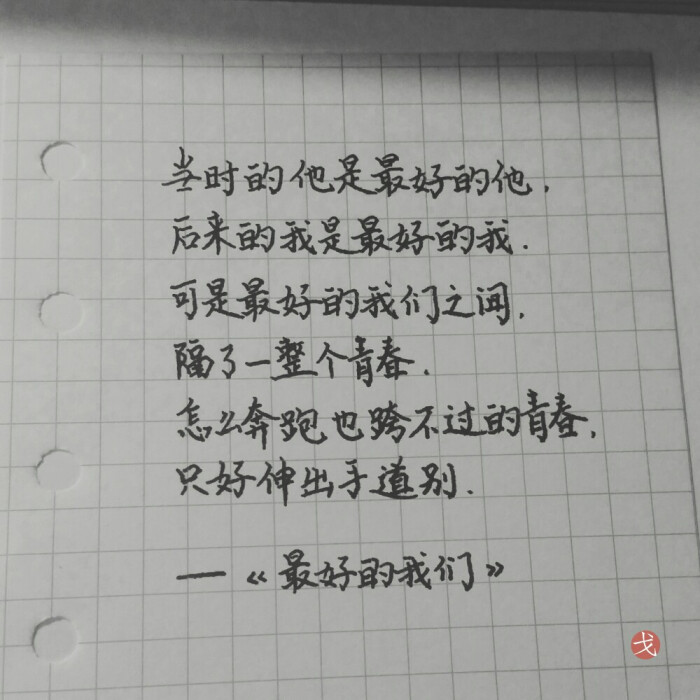 当时的他是最好的他.
后来的我是最好的我.
可是最好的我们之间,
隔了一整个青春.
怎么奔跑也跨不过的青春,
只好伸出手道别.
——《最好的我们》
戈